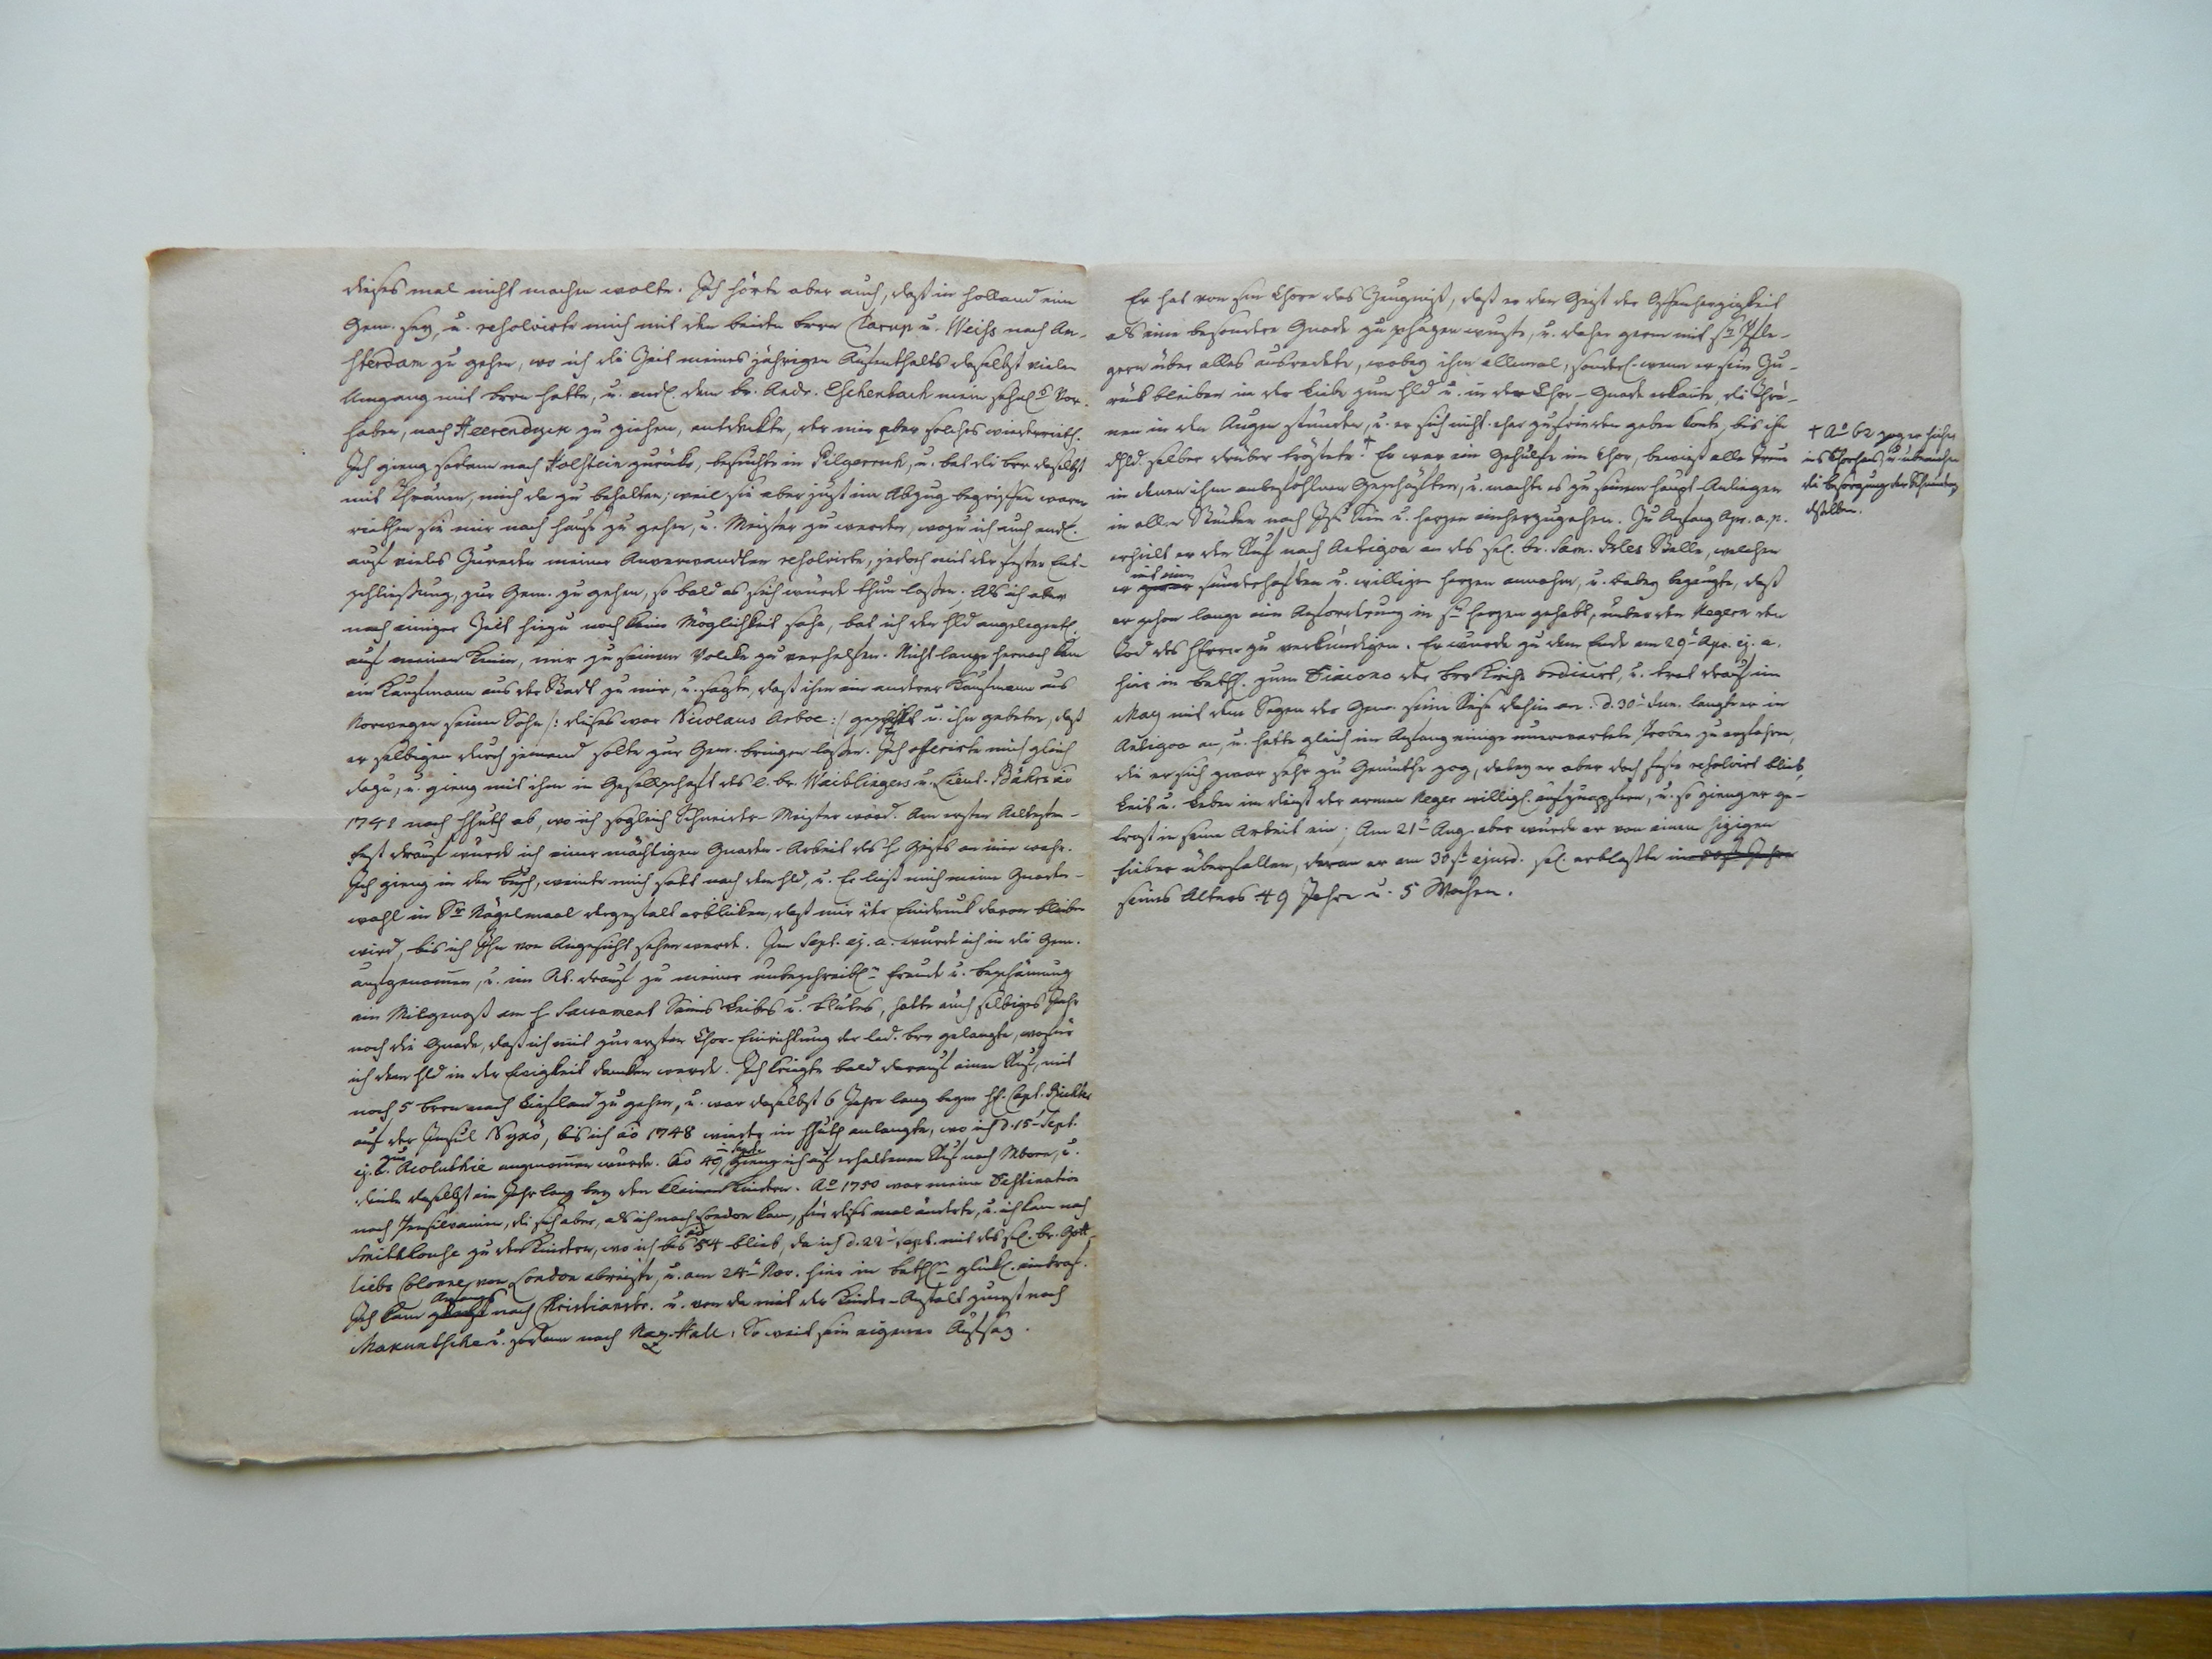 dieses mal nicht machen wolte. Ich hörte aber auch, daß in Holland eine
Gem. sey, u. resolvirte mich mit den beiden Brrn Carup u. Weiss nach Am-
sterdam zu gehen, wo ich die Zeit meines jährigen Aufenthalts daselbst vielen
Umgang mit Brrn hatte, u. endl. dem Br. Andr. Eschenbach mein sehnl. Vor-
haben, nach Heerendyck zu ziehen, entdekte, der mir aber solches wiederrieth.
Ich gieng sodann nach Holstein zurük, besuchte in Pilgerruh, u. bat die Brr daselbst
mit Thränen, mich da zu behalten; weil sie aber just im Abzug begriffen waren
riethen sie mir nach Hause zu gehen, u. Meister zu werden, wozu ich auch endl.
auf vieles Zureden meiner Anverwandten resolvirte, jedoch mit der festen Ent-
schließung, zur Gem. zu gehen, so bald es sich würde thun laßen. Als ich aber
nach einiger Zeit hiezu noch keine Möglichkeit sahe, bat ich den Hld angelegentl.
auf meinen Knien, mir zu seinem Volcke zu verhelfen. Nicht lange hernach kam
ein Kaufmann aus der Stadt zu mir, u. sagte, daß ihm ein anderer Kaufmann aus
Norwegen seinen Sohn /: dieses war Nicolaus Arboe :/ geschikt u. ihn gebeten, daß
er selbigen durch jemand solte zur Gem. bringen laßen. Ich offerirte mich gleich
dazu, u. gieng mit ihm in Gesellschaft des l. Br. Waiblingers u. Lieut. Bährs ao
1741 nach HHuth ab, wo ich sogleich Schneider-Meister ward. Am ersten Aeltesten-
fest drauf wurde ich einer mächtigen Gnaden-Arbeit des H. Geists an mir wahr.
Ich gieng in den Busch, weinte mich satt nach dem Hld, u. Er ließ mich meine Gnaden-
wahl in Sr Nägelmaal dergestalt erbliken, daß mir der Eindruck davon bleiben
wird, bis ich Ihn von Angesicht sehen werde. Im Sept. ej. a. wurde ich in die Gem.
aufgenommen, u. im drauf zu meiner unbeschreibl. Freude u. Beschämung
ein Mitgenoß am H. Sacrament Seines Leibes u. Blutes, hatte auch selbiges Jahr
noch die Gnade, daß ich mit zur ersten Chor-Einrichtung der led. Brr gelangte, wofür
ich dem Hld in der Ewigkeit danken werde. Ich kriegte bald darauf einen Ruf, mit
noch 5 Brrn nach Liefland zu gehen, u. war daselbst 6 Jahre lang beym H. Capt. Richter
auf der Insul Nykö, bis ich ao 1748 wieder in HHuth anlangte, wo ich d. 15t Sept.
ej. a. zur Acoluthie angenommen wurde. Ao 49 gieng ich auf erhaltenen Ruf nach , u.
diente daselbst ein Jahr lang bey den kleinen Kindern. Ao 1750 war meine Destination
nach Pensilvanien, die sich aber, als ich nach London kam, für dißmal änderte, u. ich kam nach
Smithhouse zu den Kindern, wo ich bis ao 54 blieb, da ich d. 22t Sept. mit des sel. Br. Gott-
liebs Colonne von London abreiste, u. am 24t Nov. hier in Bethl. glükl. eintraf.
Ich kam Anfangs nach Christiansbr. u. von da mit der Kinder-Anstalt zuerst nach
Makuntschi u. sodann nach Naz.-Hall. So weit sein eigener Aufsaz.
Er hat von sm Chore das Zeugniß, daß er den Geist der Offenherzigkeit
als eine besondere Gnade zu schäzen wuste, u. daher gern mit sn Pfle-
gern über alles ausredete, wobey ihm allemal, sonderl. wenn er sein Zu-
rük bleiben in der Liebe zum Hld u. in der Chor-Gnade erkante, die Thrä-
nen in den Augen stunden, u. er sich nicht eher zufrieden geben konte, bis ihn
d Hld selber drüber tröstete. † Er war ein Gehülfe im Chor, bewieß alle Treue
in denen ihm anbefohlnen Geschäften, u. machte es zu seinem Haupt-Anliegen
in allen Stüken nach Jesu Sinn u. Herzen einherzugehen. Zu Anfang Apr. a. p.
erhielt er den Ruf nach Antigoa an des sel. Br. Sam. Isles Stelle, welchen
er mit einem sünderhaften u. willigen Herzen annahm, u. dabey bezeugte, daß
er schon lange eine Anforderung in sm Herzen gehabt, unter den Negern den
Tod des HErrn zu verkündigen. Er wurde zu dem Ende am 29t Apr. ej. a.
hier in Bethl. zum Diacono der Brr Kirche ordinirt, u. trat drauf im
May mit dem Segen der Gem. seine Reise dahin an. d. 30t Jun. langte er in
Antigoa an, u. hatte gleich im Anfang einige unerwartete Proben zu erfahren,
die er sich zwar sehr zu Gemüthe zog, dabey er aber doch feste resolvirt blieb,
Leib u. Leben im Dienst der armen Neger willigl. aufzuopfern, u. so gieng er ge-
trost in seine Arbeit ein; Am 21t Aug. aber wurde er von einem hizigen
Fieber überfallen, daran er am 30st ejusd. sel. erblaßte
seines Alters 49 Jahre u. 5 Wochen.
† Ao 62 zog er hieher
ins Chorhaus, u. übernahm
die Besorgung der Schneiderey
dselben.